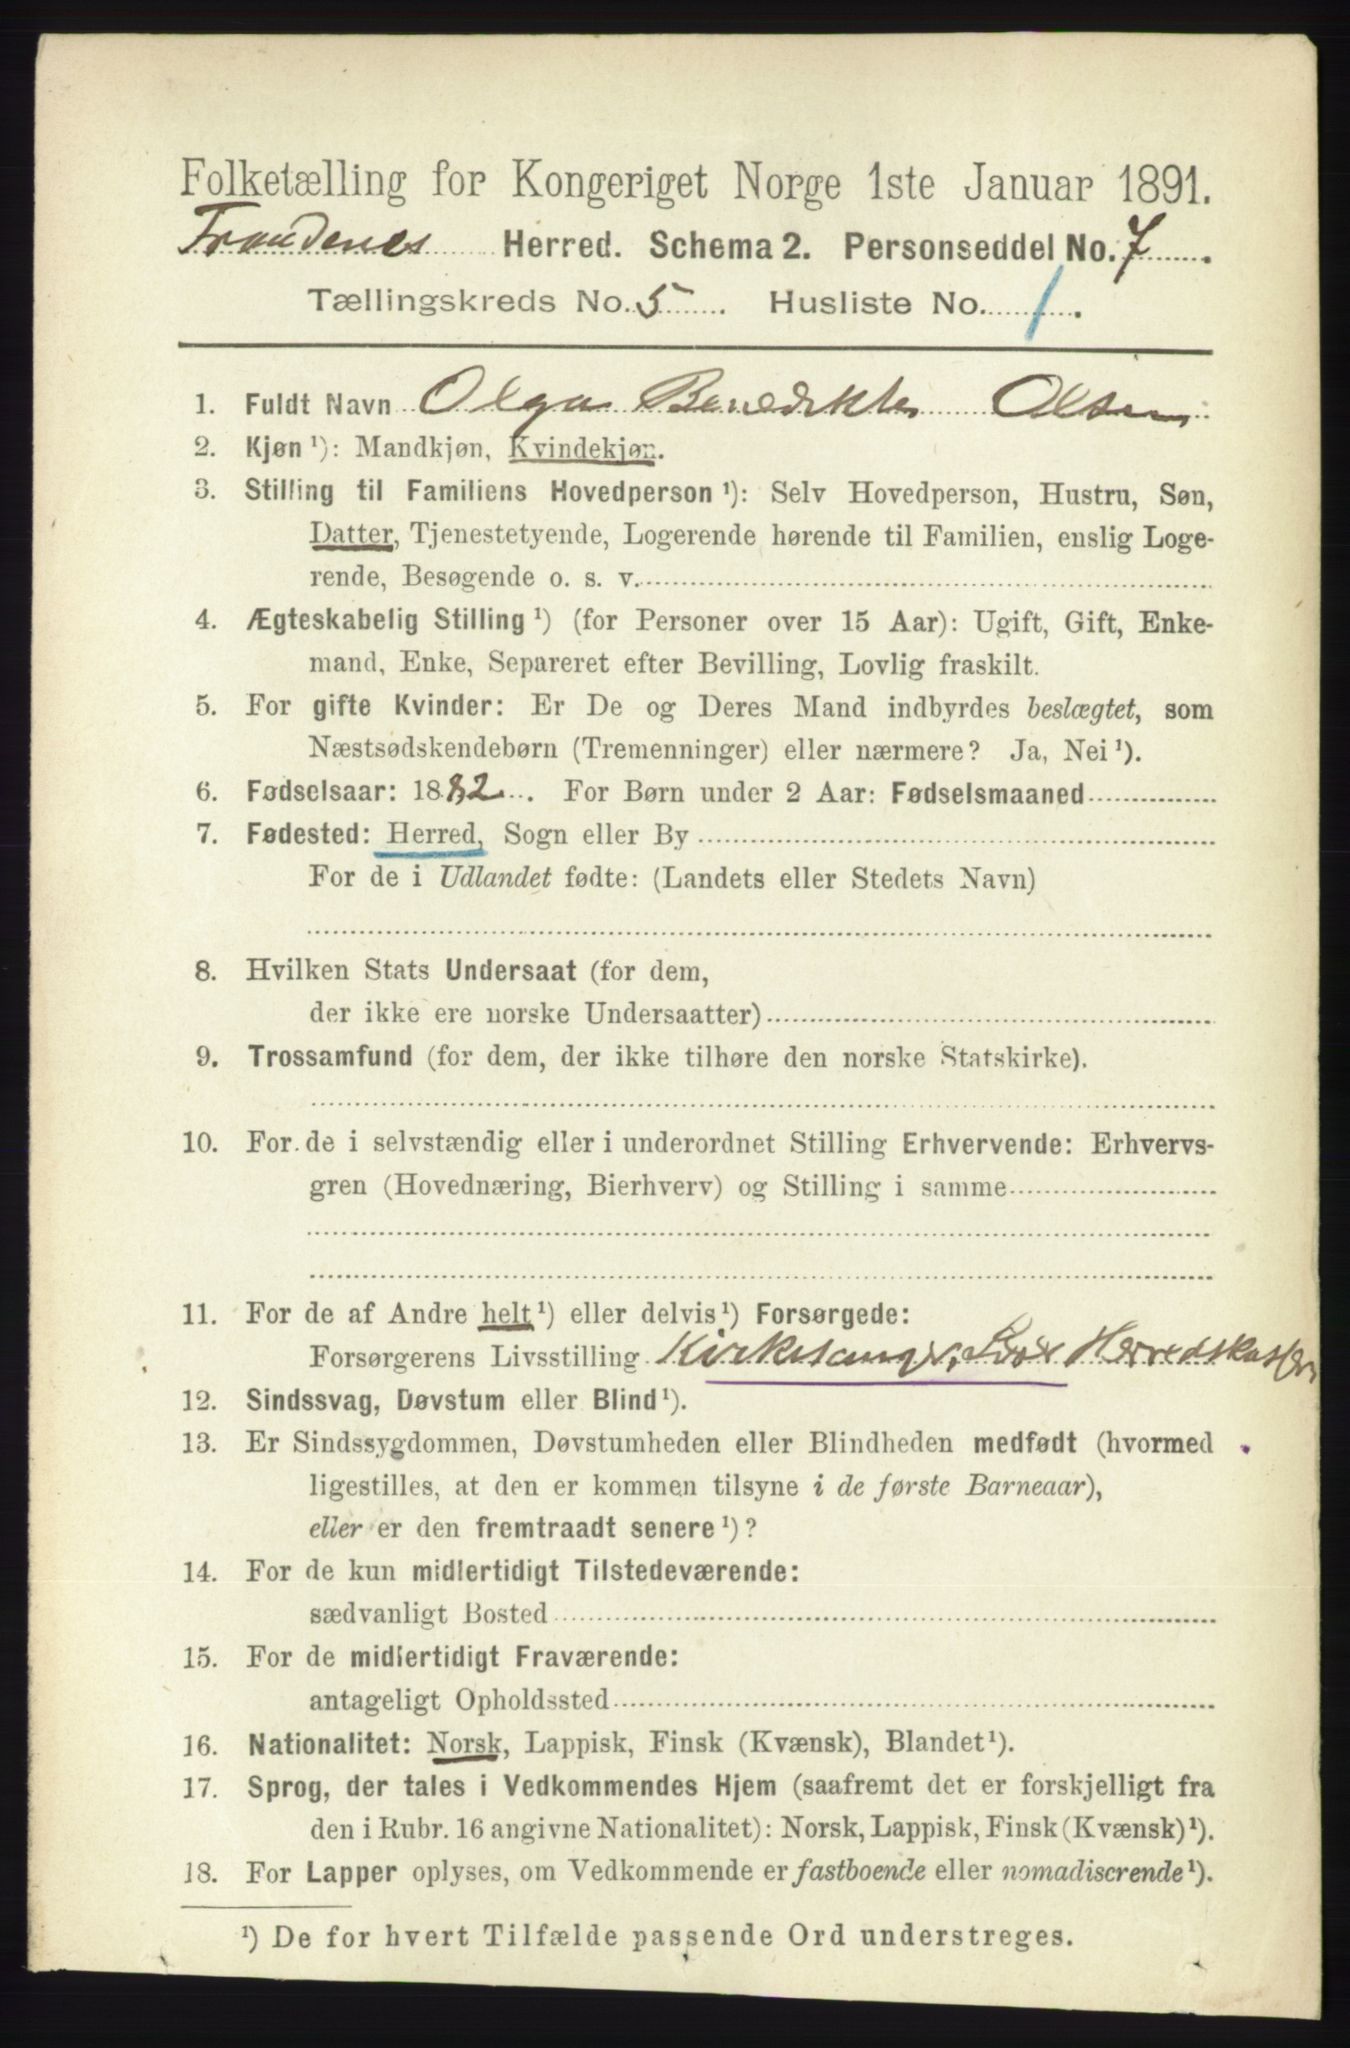 Folketælling for Kongeriget Norge 1ste Januar 1891.
Trondenes Herred. Schema 2. Personseddel No. 7
Tællingskreds No. 5 Husliste No. 1.
1. Fuldt Navn Olga Benedikte Olsen
2. Kjøn ¹): Mandkjøn, Kvindekjøn.
3. Stilling til Familiens Hovedperson ¹): Selv Hovedperson, Hustru, Søn,
Datter, Tjenestetyende, Logerende hørende til Familien, enslig Loge-
rende, Besøgende o. s. v.
4. Ægteskabelig Stilling ¹) (for Personer over 15 Aar): Ugift, Gift, Enke-
mand, Enke, Separeret efter Bevilling, Lovlig fraskilt.
5. For gifte Kvinder: Er De og Deres Mand indbyrdes beslægtet, som
Næstsødskendebørn (Tremenninger) eller nærmere? Ja, Nei ¹).
6. Fødselsaar: 1882. For Børn under 2 Aar: Fødselsmaaned
7. Fødested: Herred, Sogn eller By
For de i Udlandet fødte: (Landets eller Stedets Navn)
8. Hvilken Stats Undersaat (for dem,
der ikke ere norske Undersaatter)
9. Trossamfund (for dem, der ikke tilhøre den norske Statskirke).
10. For de i selvstændig eller i underordnet Stilling Erhvervende: Erhvervs-
gren (Hovednæring, Bierhverv) og Stilling i samme
11. For de af Andre helt ¹) eller delvis ¹) Forsørgede:
Forsørgerens Livsstilling Kirkesanger, Herredskasserer
12. Sindssvag, Døvstum eller Blind ¹).
13. Er Sindssygdommen, Døvstumheden eller Blindheden medfødt (hvormed
ligestilles, at den er kommen tilsyne i de første Barneaar),
eller er den fremtraadt senere ¹)?
14. For de kun midlertidigt Tilstedeværende:
sædvanligt Bosted
15. For de midlertidigt Fraværende:
antageligt Opholdssted
16. Nationalitet: Norsk, Lappisk, Finsk (Kvænsk), Blandet ¹).
17. Sprog, der tales i Vedkommendes Hjem (saafremt det er forskjelligt fra
den i Rubr. 16 angivne Nationalitet): Norsk, Lappisk, Finsk (Kvænsk) ¹).
18. For Lapper oplyses, om Vedkommende er fastboende eller nomadiserende ¹).
¹) De for hvert Tilfælde passende Ord understreges.